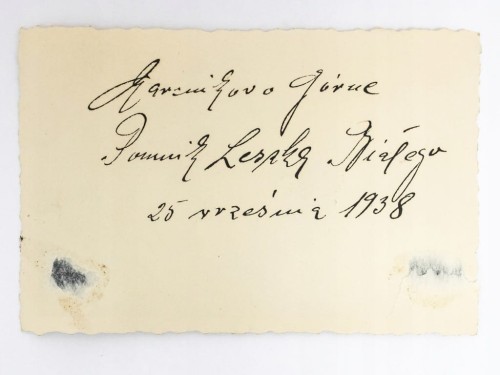 Marcinkowo Górne
Pomnik Leszka Białego
25 września 1938